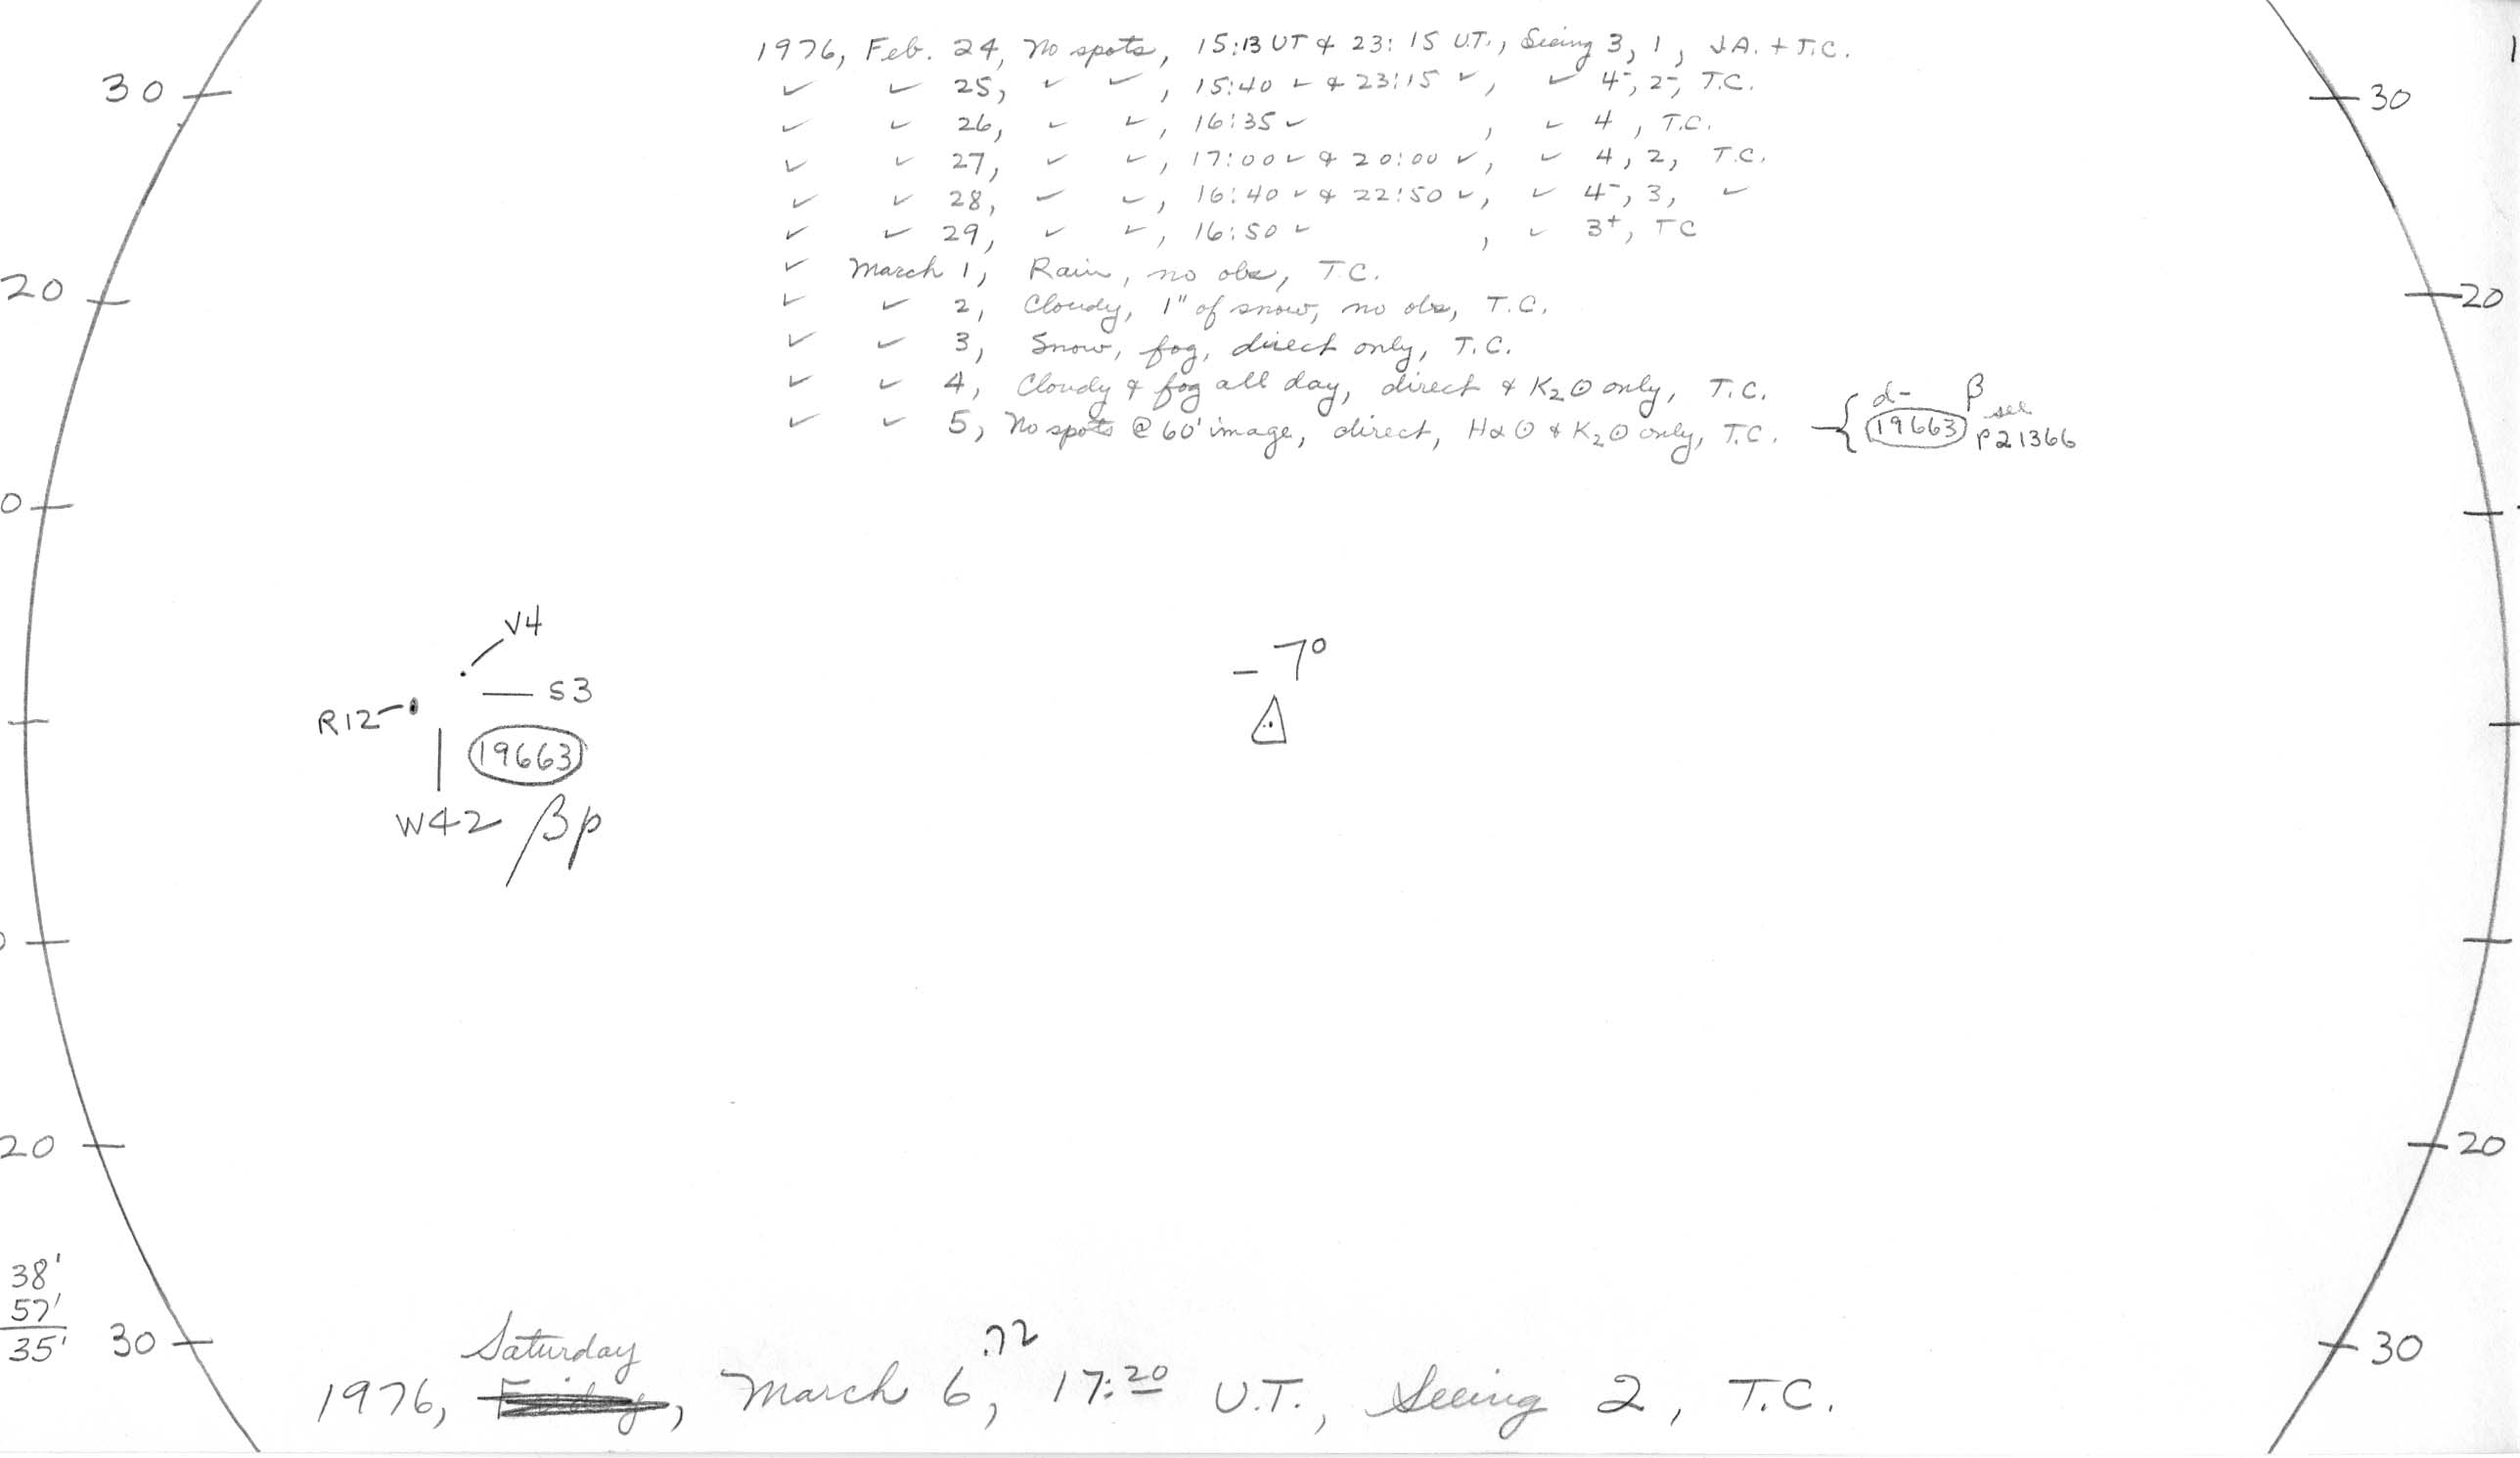 1976, Feb. 24, No spots, 15:13 UT & 23:15 U.T., Seeing 3, 1, J.A. + T.C.
✓ ✓ 25, ✓ ✓, 15:40 ✓ & 23:15 ✓, ✓ 4-, 2-, T.C.
✓ ✓ 26, ✓ ✓, 16:35 ✓ , ✓ 4, T.C.
✓ ✓ 27, ✓ ✓, 17:00 ✓ & 20:00 ✓, ✓ 4, 2, T.C.
✓ ✓ 28, ✓ ✓, 16:40 ✓ & 22:50 ✓, ✓ 4-, 3, ✓
✓ ✓ 29, ✓ ✓, 16:50 ✓ , ✓ 3+, TC
✓ March 1, Rain, no obs, T.C.
✓ ✓ 2, Cloudy, 1" of snow, no obs, T.C.
✓ ✓ 3, Snow, fog, direct only, T.C.
✓ ✓ 4, Cloudy & fog all day, direct & K2⊙ only, T.C.
✓ ✓ 5, No spots @ 60' image, direct, Hα⊙ & K2⊙ only, T.C.
d- β
19663 see
p21366
30
30
20
20
0
V4
S3
R12
19663
W42 βp
-7°
20
20
38'
57'
35'
30
30
Saturday .72
1976, Friday, March 6, 17:20 U.T., Seeing 2, T.C.